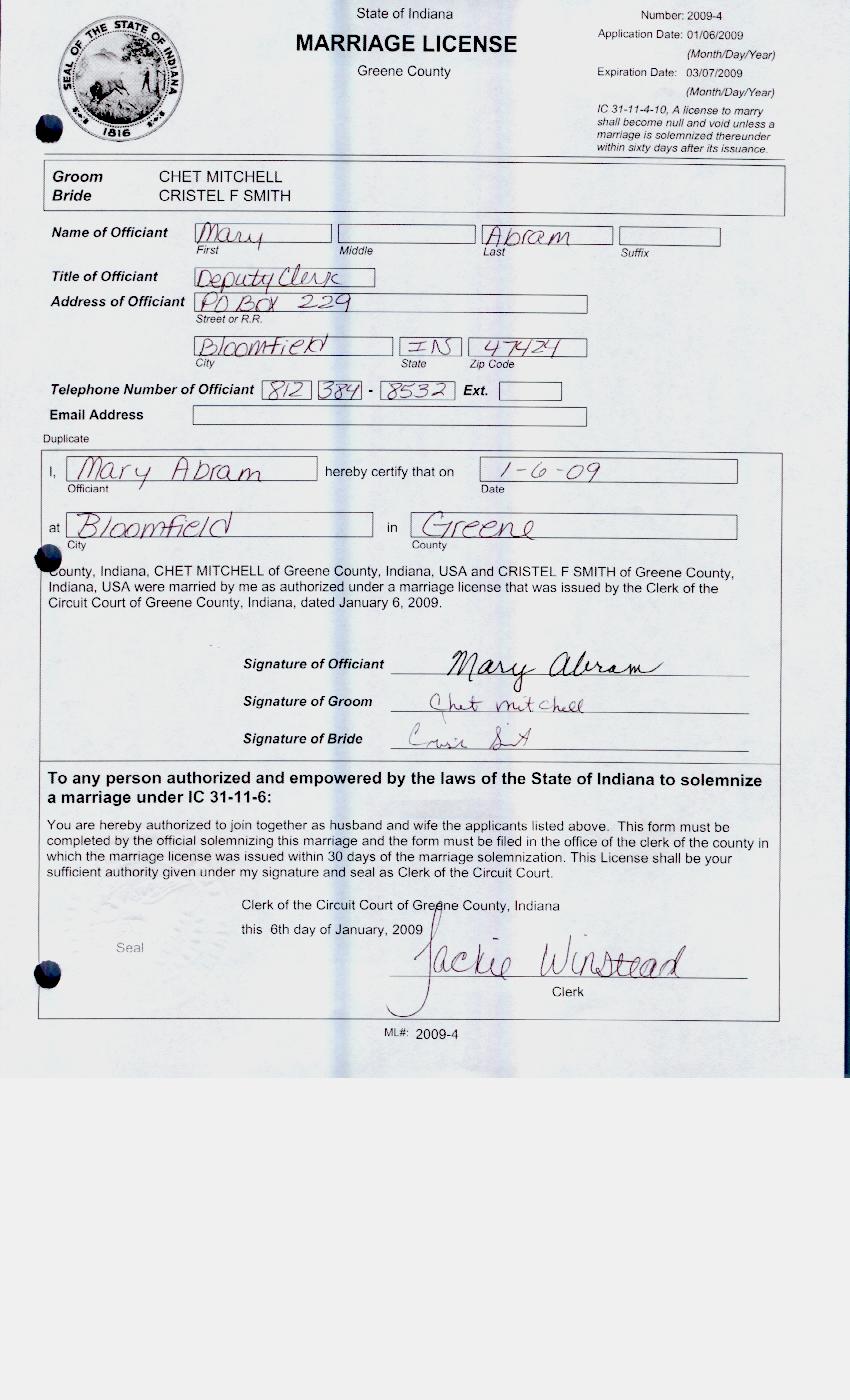 State of Indiana
MARRIAGE LICENSE
Greene County
SEAL OF THE STATE OF INDIANA
1816
Number: 2009-4
Application Date: 01/06/2009
(Month/Day/Year)
Expiration Date: 03/07/2009
(Month/Day/Year)
IC 31-11-4-10, A license to marry
shall become null and void unless a
marriage is solemnized thereunder
within sixty days after its issuance.
Groom CHET MITCHELL
Bride CRISTEL F SMITH
Name of Officiant Mary Abram
First Middle Last Suffix
Title of Officiant Deputy Clerk
Address of Officiant PO Box 229
Street or R.R.
Bloomfield IN 47424
City State Zip Code
Telephone Number of Officiant 812 384 - 8532 Ext.
Email Address
Duplicate
I, Mary Abram hereby certify that on 1-6-09
Officiant Date
at Bloomfield in Greene
City County
County, Indiana, CHET MITCHELL of Greene County, Indiana, USA and CRISTEL F SMITH of Greene County,
Indiana, USA were married by me as authorized under a marriage license that was issued by the Clerk of the
Circuit Court of Greene County, Indiana, dated January 6, 2009.
Signature of Officiant Mary Abram
Signature of Groom Chet Mitchell
Signature of Bride
To any person authorized and empowered by the laws of the State of Indiana to solemnize
a marriage under IC 31-11-6:
You are hereby authorized to join together as husband and wife the applicants listed above. This form must be
completed by the official solemnizing this marriage and the form must be filed in the office of the clerk of the county in
which the marriage license was issued within 30 days of the marriage solemnization. This License shall be your
sufficient authority given under my signature and seal as Clerk of the Circuit Court.
Clerk of the Circuit Court of Greene County, Indiana
this 6th day of January, 2009
Seal
Jackie Winstead
Clerk
ML#: 2009-4